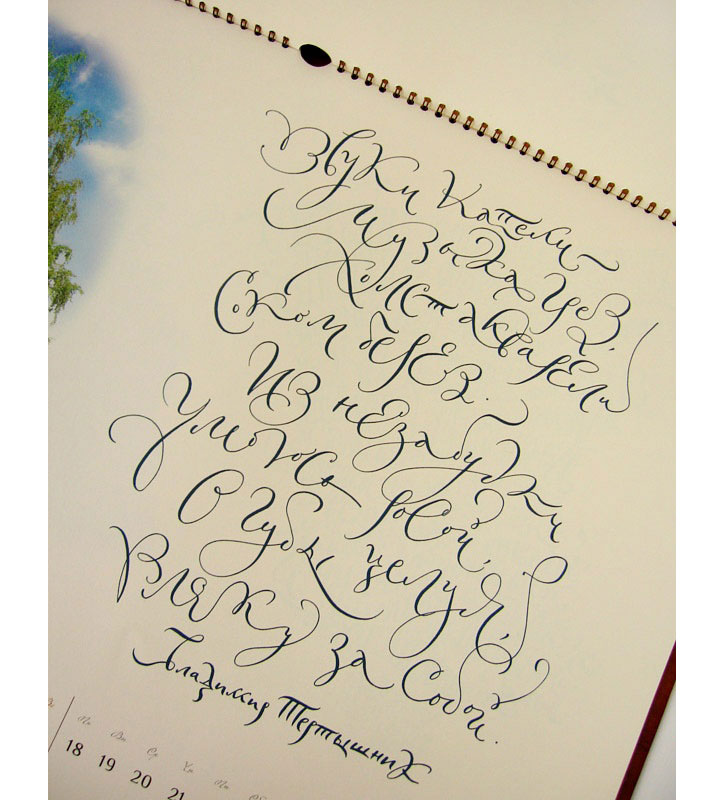 Звуки капели –
Музыка грез,
Холст акварели
Соком берез.
Из незабудки
Умоюсь росой,
В губы целуя,
Влеку за собой.
Владимир Тертышник
Пн Вт Ср Чт Пт
18 19 20 21